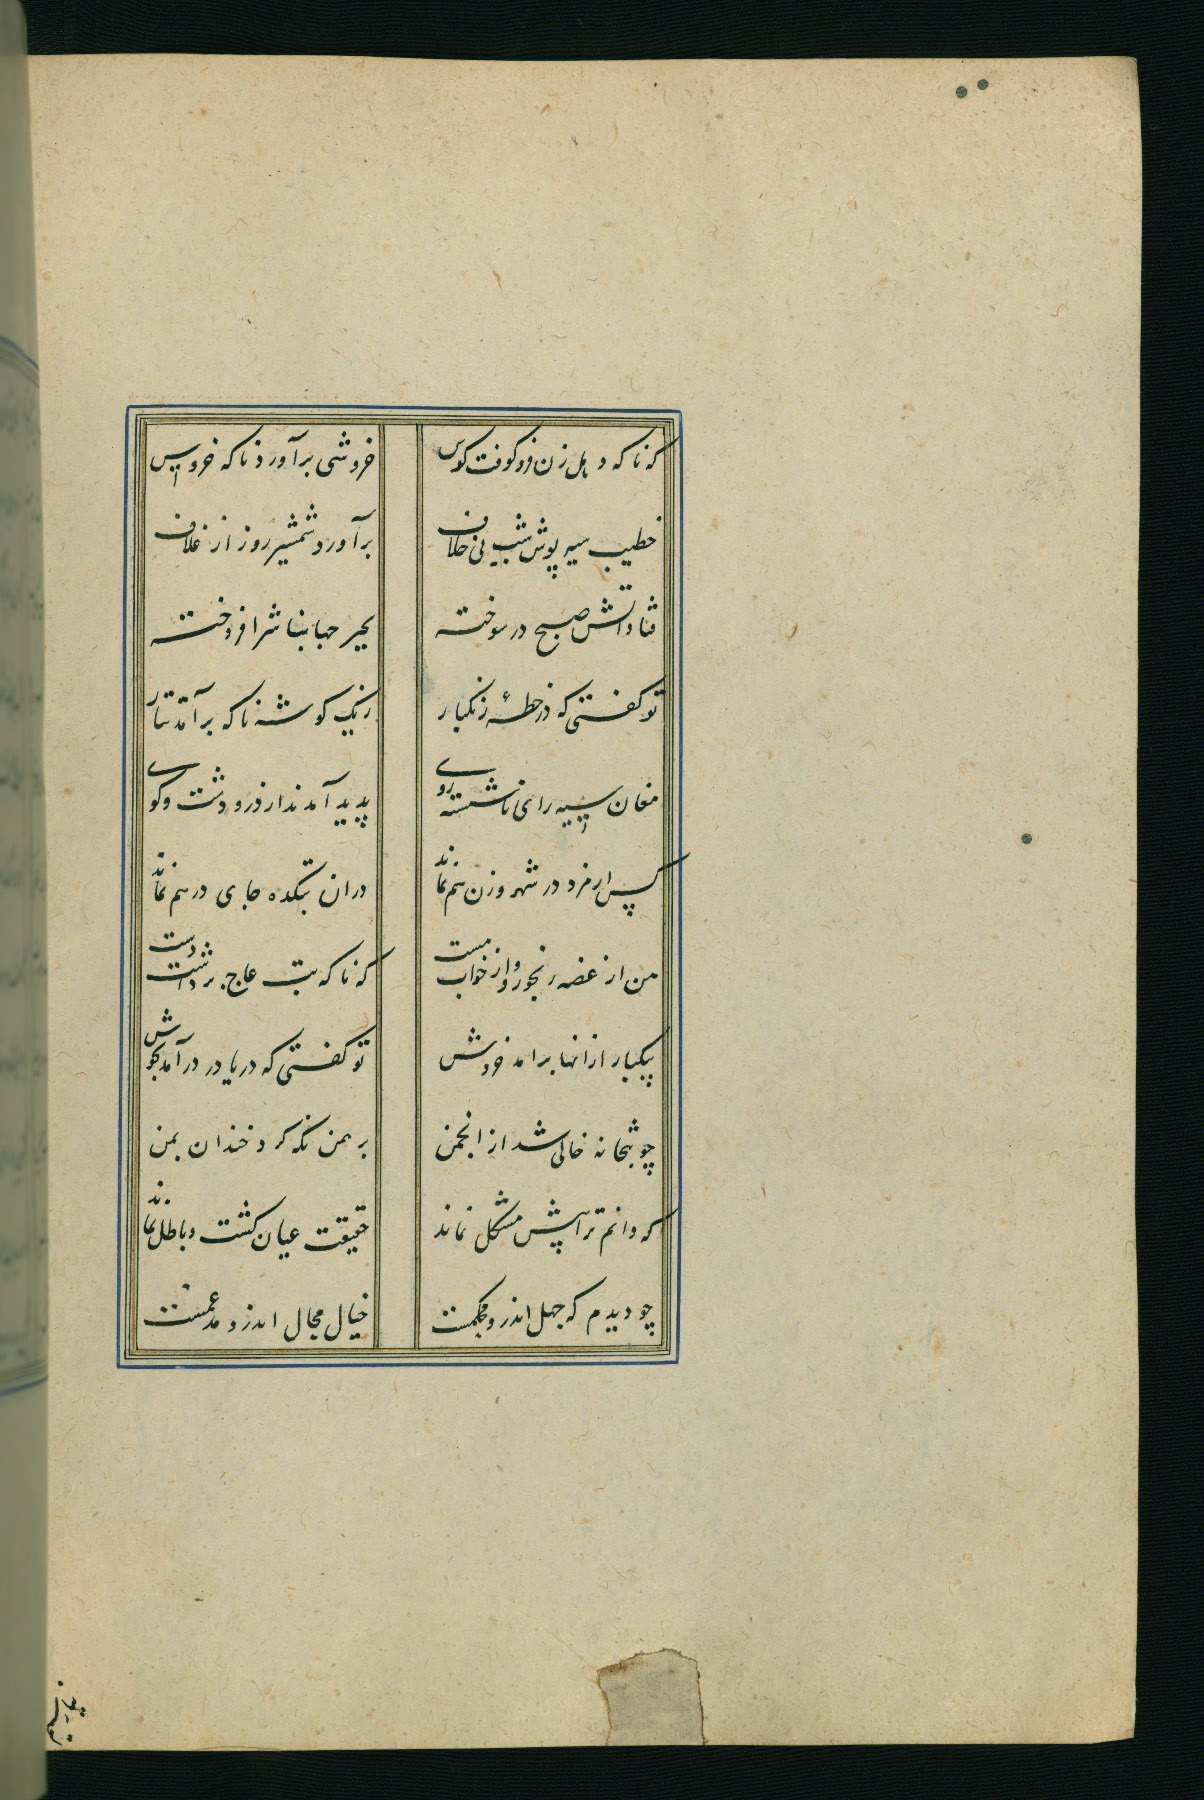 که ناکه دهل زن فرو کوفت کوس خروشی برآورد ناکه خروس
خطیب سیه پوش شب بی خلاف برآورد شمشیر روز از غلاف
فتاد آتش صبح در سوخته افروخته
تو کفتی که در خطهٔ زنکبار ز یک کوشه ناکه برآمد تتار
مغان سیه رای ناشسته روی پدید آمدند از در و دشت و کوی
کس از مرد در شهر و زن هم نماند دران بتکده جای درهم نماند
من از غصه رنجور و از خواب مست که ناکه بت عاج برداشت دست
بیکبار ازانها برامد خروش تو کفتی که دریا در درآمد بجوش
چو بتخانه خالی شد از انجمن برهمن نکه کرد خندان بمن
که دانم ترا بیش مشکل نماند حقیقت عیان کشت و باطل نماند
چو دیدم که جهل اندرو محکمست خیال محال اندرو مدغمست